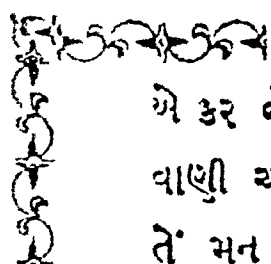 એ કર
વાણી
તેં મન